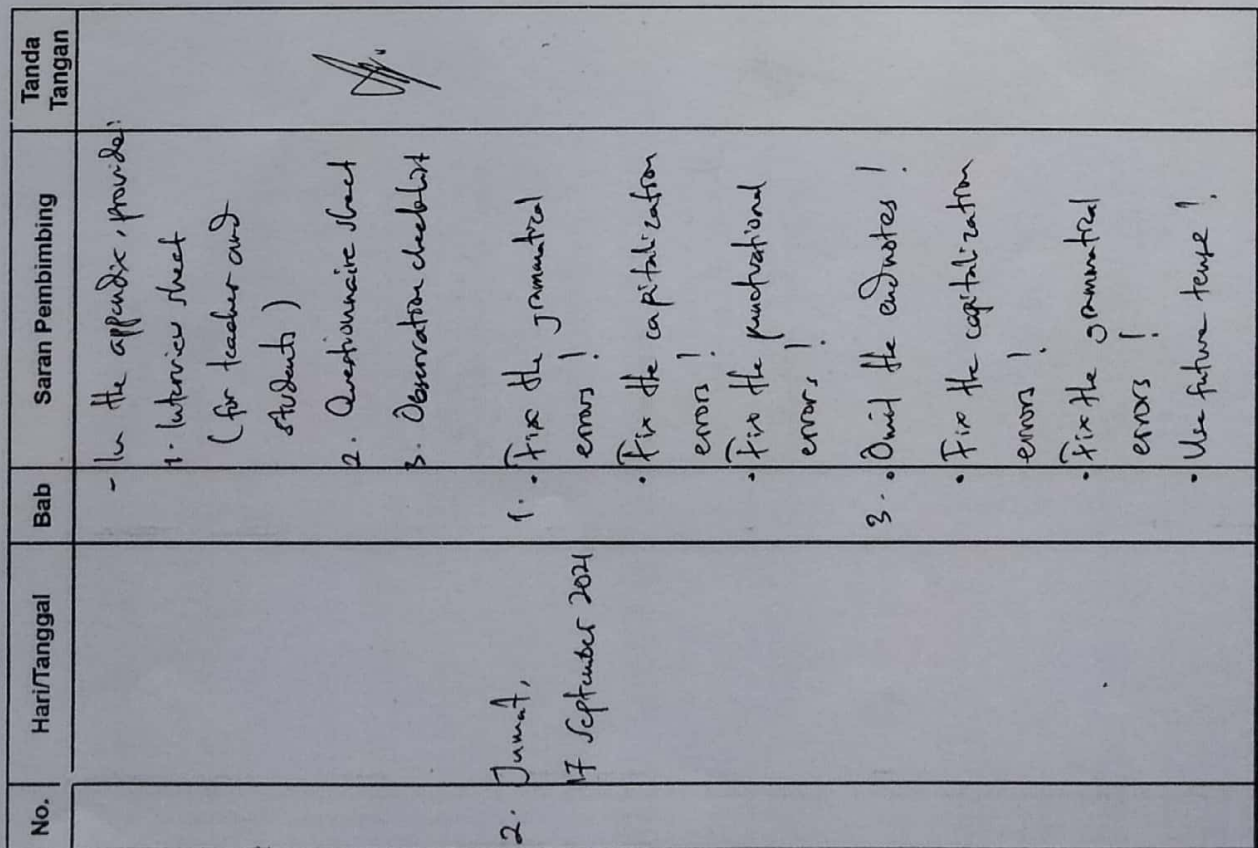 No. Hari/Tanggal Bab Saran Pembimbing Tanda
Tangan
- In the appendix, provide:
1. Interview sheet
(for teacher and
students)
2. Questionnaire sheet
3. Observation checklist
2. Jumat, 1. • Fix the grammatical
17 September 2021 errors!
• Fix the capitalization
errors!
• Fix the punctuational
errors!
3. • Omit the endnotes!
• Fix the capitalization
errors!
• Fix the grammatical
errors!
• Use future tense!